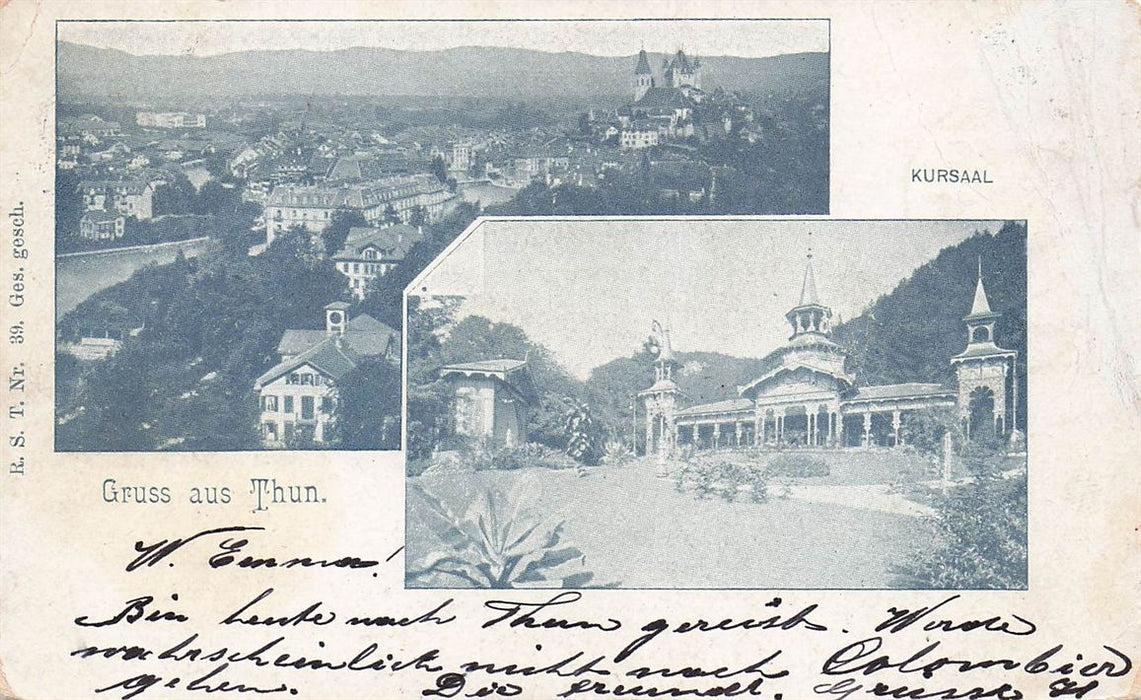 KURSAAL
R. S. T. Nr. 39. Ges. gesch.
Gruss aus Thun.
W. Emma!
Bin heute nach Thun gereist. Werde
wahrscheinlich nicht nach Colombier
gehen. Die freundl. Grüsse